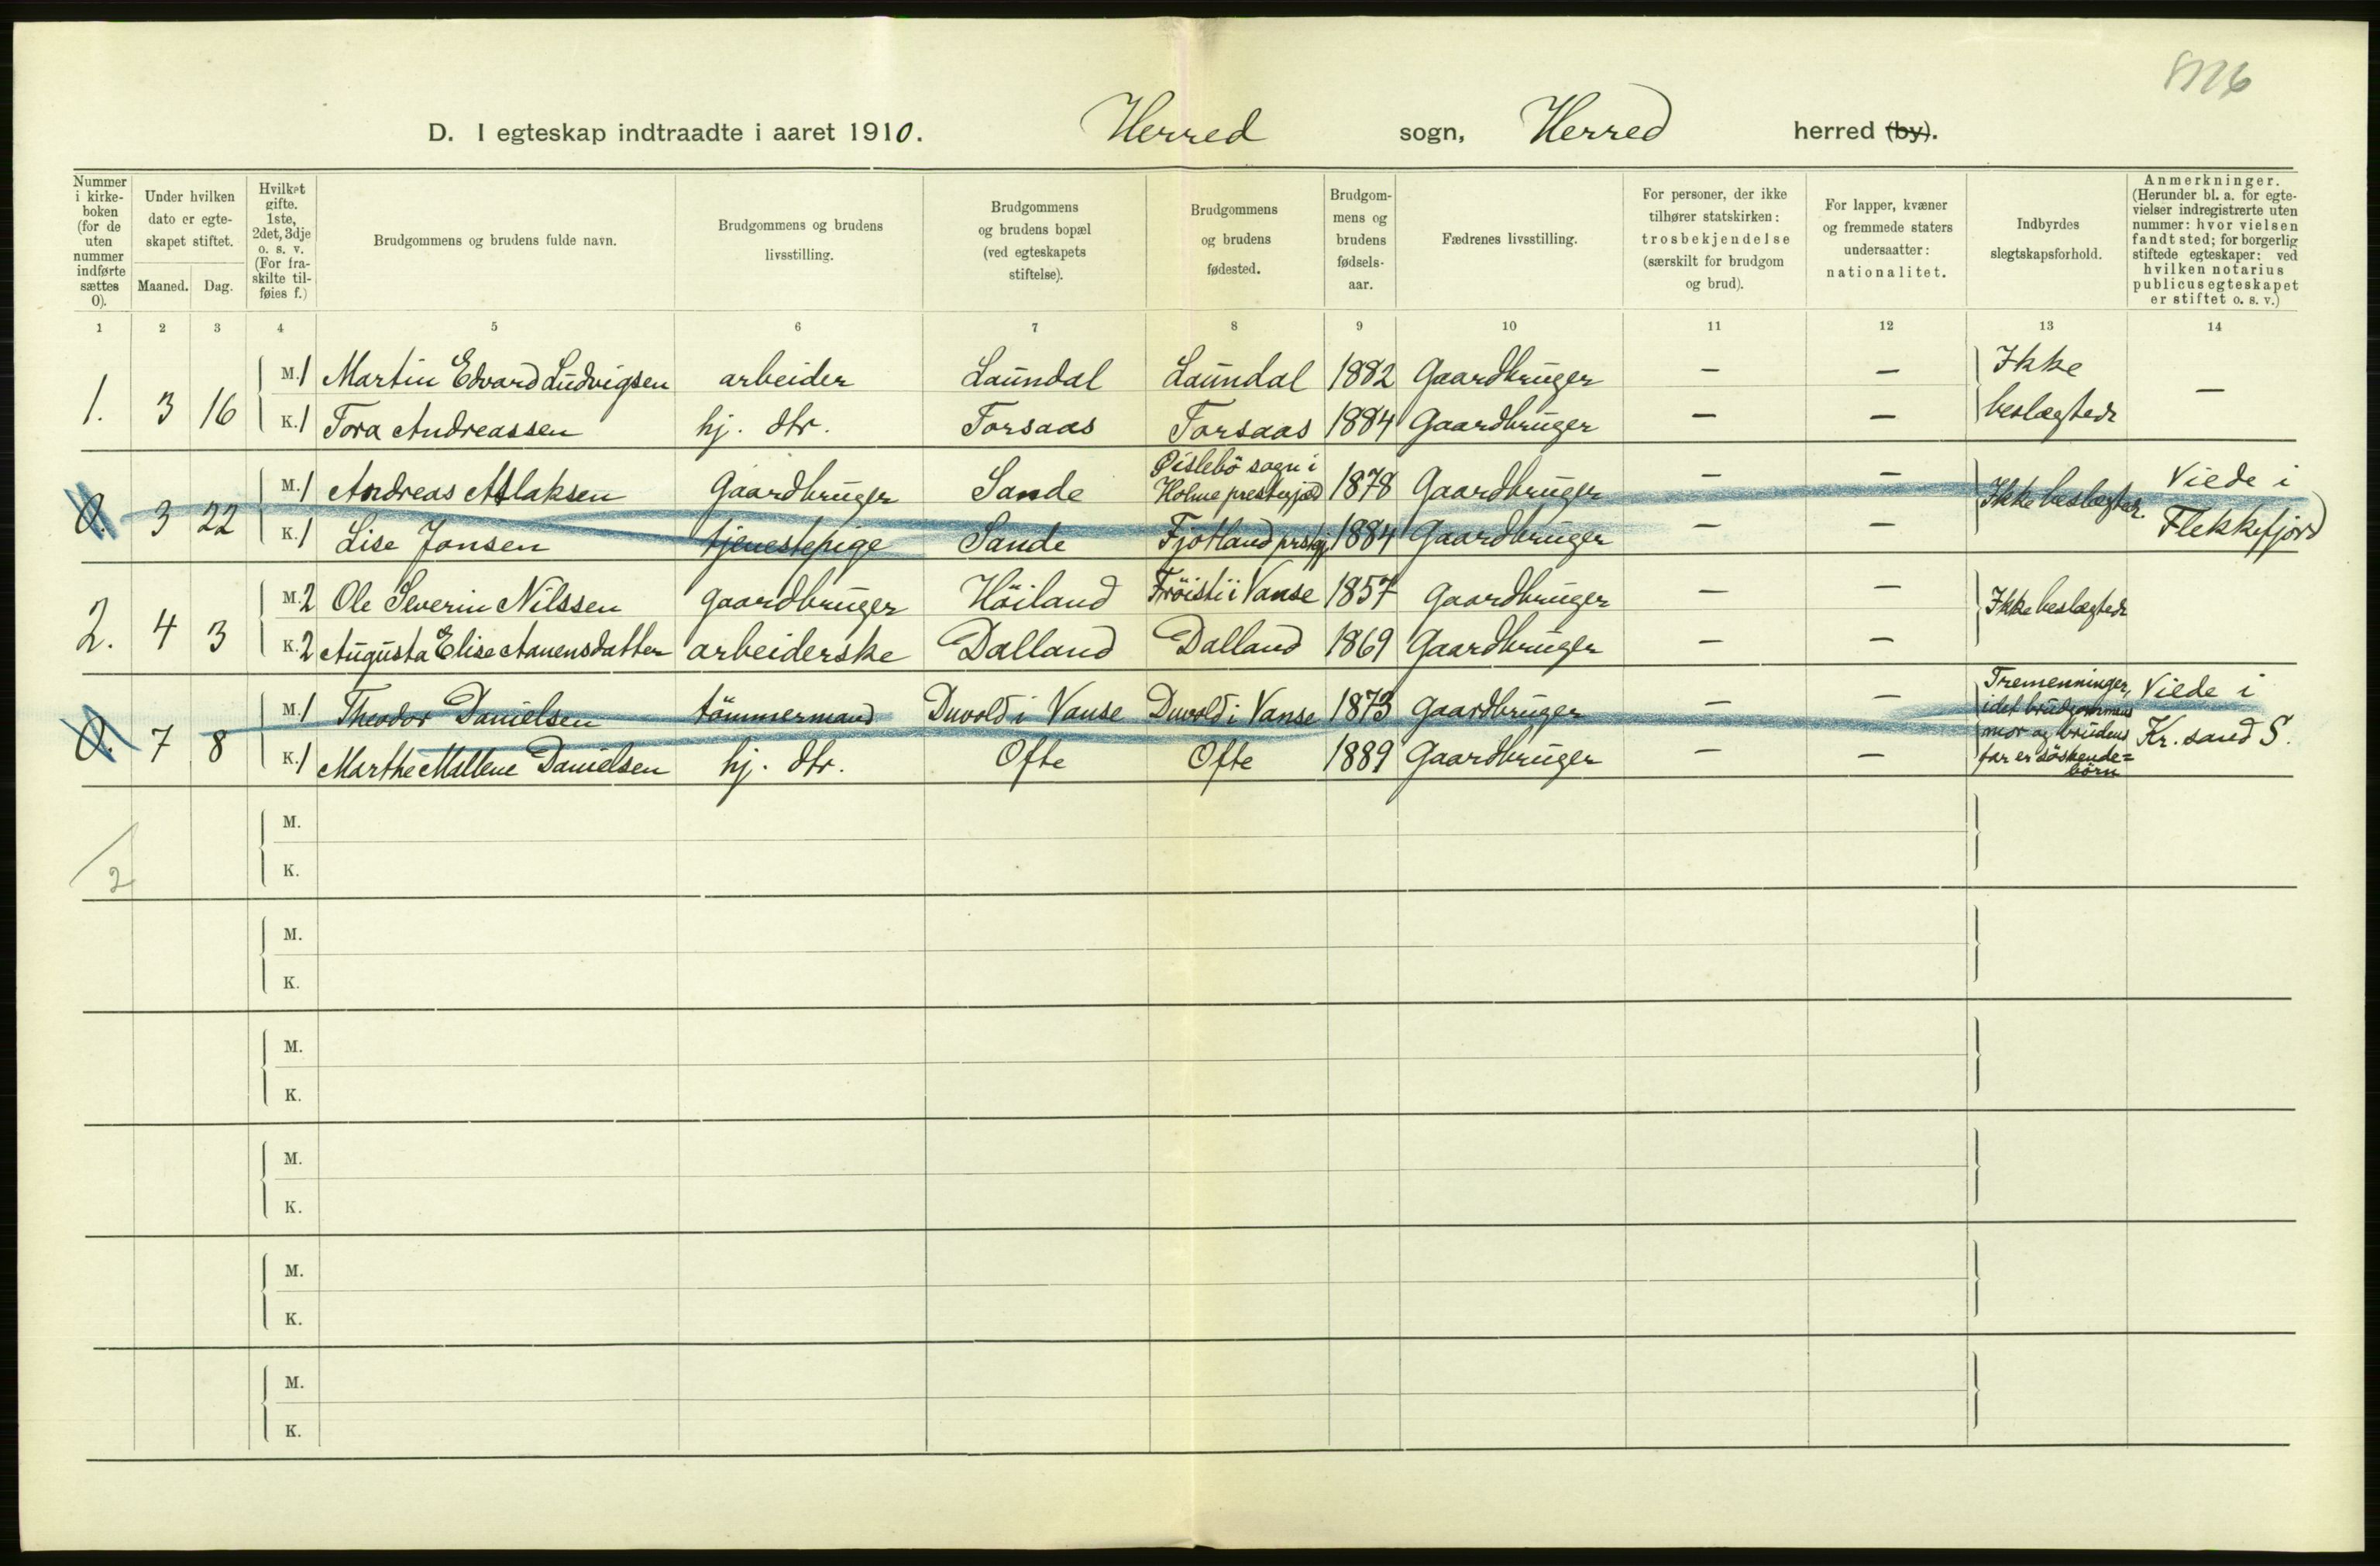 D. I egteskap indtraadte i aaret 1910. Herred sogn, Herred herred (by).
Nummer i kirkeboken (for de uten nummer indførte sættes 0).
Under hvilken dato er egteskapet stiftet.
Maaned. Dag.
Hvilket gifte. 1ste, 2det, 3dje o. s. v. (For fraskilte tilføies f.)
Brudgommens og brudens fulde navn.
Brudgommens og brudens livsstilling.
Brudgommens og brudens bopæl (ved egteskapets stiftelse).
Brudgommens og brudens fødested.
Brudgommens og brudens fødselsaar.
Fædrenes livsstilling.
For personer, der ikke tilhører statskirken: trosbekjendelse (særskilt for brudgom og brud).
For lapper, kvæner og fremmede staters undersaatter: nationalitet.
Indbyrdes slegtskapsforhold.
Anmerkninger. (Herunder bl. a. for egtevielser indregistrerte uten nummer: hvor vielsen fandt sted; for borgerlig stiftede egteskaper: ved hvilken notarius publicus egteskapet er stiftet o. s. v.)
1 2 3 4 5 6 7 8 9 10 11 12 13 14
1. 3 16 M. 1 Martin Edvard Ludvigsen arbeider Laundal Laundal 1882 Gaardbruger — — Ikke —
K. 1 Tora Andreassen hj. dtr. Forsaas Forsaas 1884 Gaardbruger — — beslægtede
0. 3 22 M. 1 Andreas Aslaksen Gaardbruger Sande Øislebö sogn i Holme prestegjæld 1878 Gaardbruger — — Ikke beslægtede. Viede i
K. 1 Lise Jonsen tjenestepige Sande Fjotland prstgj. 1884 Gaardbruger — — Flekkefjord
2. 4 3 M. 2 Ole Severin Nilssen gaardbruger Höiland Fröisti i Vanse 1857 gaardbruger — — Ikke beslægtede
K. 2 Augusta Elise Aanensdatter arbeiderske Dalland Dalland 1869 Gaardbruger — —
0. 7 8 M. 1 Theodor Danielsen tömmermand Duvold i Vanse Duvold i Vanse 1873 gaardbruger — — Tremenninger, idet brudgommens Viede i
K. 1 Marthe Mallene Danielsen hj. dtr. Ofte Ofte 1889 Gaardbruger — — mor og brudens far er söskendebörn Kr. sand S.
M.
2
K.
M.
K.
M.
K.
M.
K.
M.
K.
M.
K.